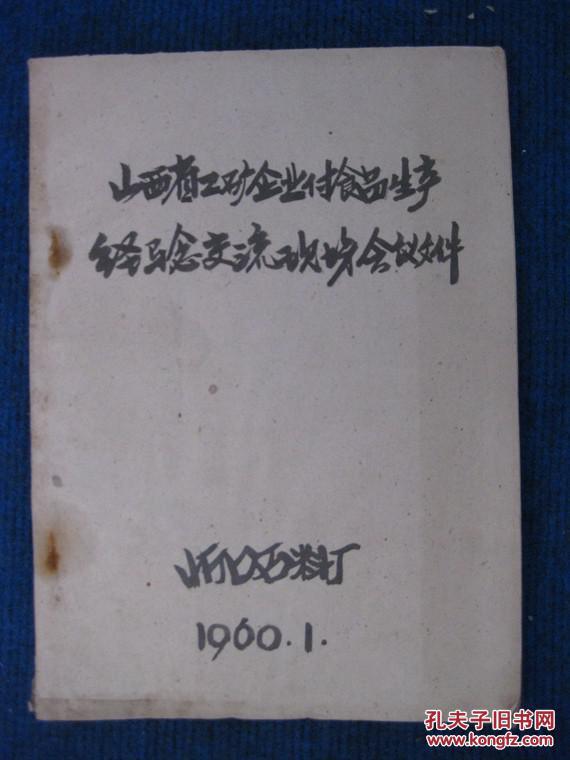 山西省工矿企业付食品生产
经验交流现场会议文件
1960.1.
孔夫子旧书网
www.kongfz.com